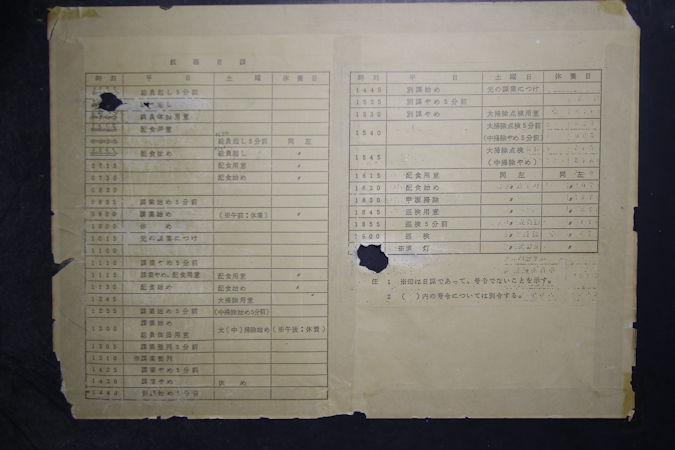 日課
時刻 平日 土曜 休養日
総員起し5分前
総員体操用意
配食用意
総員起し5分前 同左
配食始め 総員起し 〃
0715 配食用意 〃
0730 配食始め 〃
0820
0855 課業始め5分前
0900 課業始め (※午前:休業)
1000 休め
1015 元の課業につけ
1100
1110 課業やめ5分前
1115 課業やめ、配食用意 配食用意 〃
1130 配食始め 配食始め 〃
1245 大掃除用意
1255 課業始め5分前 (中掃除始め5分前)
1300 課業始め 大(中)掃除始め (※午後:休業)
総員体操用意
1305 課業整列5分前
1310 ※課業整列
1425 課業やめ5分前
1430 課業やめ 休め
1440 別課始め5分前
時刻 平日 土曜日 休養日
1445 別課始め 元の課業につけ
1525 別課やめ5分前
1530 別課やめ 大掃除点検用意
1540 大掃除点検5分前
(中掃除やめ5分前)
1545 大掃除点検
(中掃除やめ)
1615 配食用意 同左 同左
1630 配食始め 〃 〃
1830 甲板掃除 〃 〃
1845 巡検用意 〃 〃
1855 巡検5分前 〃 〃
1900 巡検 〃 〃
※消灯 〃 〃
註 1 ※印は日課であって、号令でないことを示す。
2 ( )内の号令については別令する。